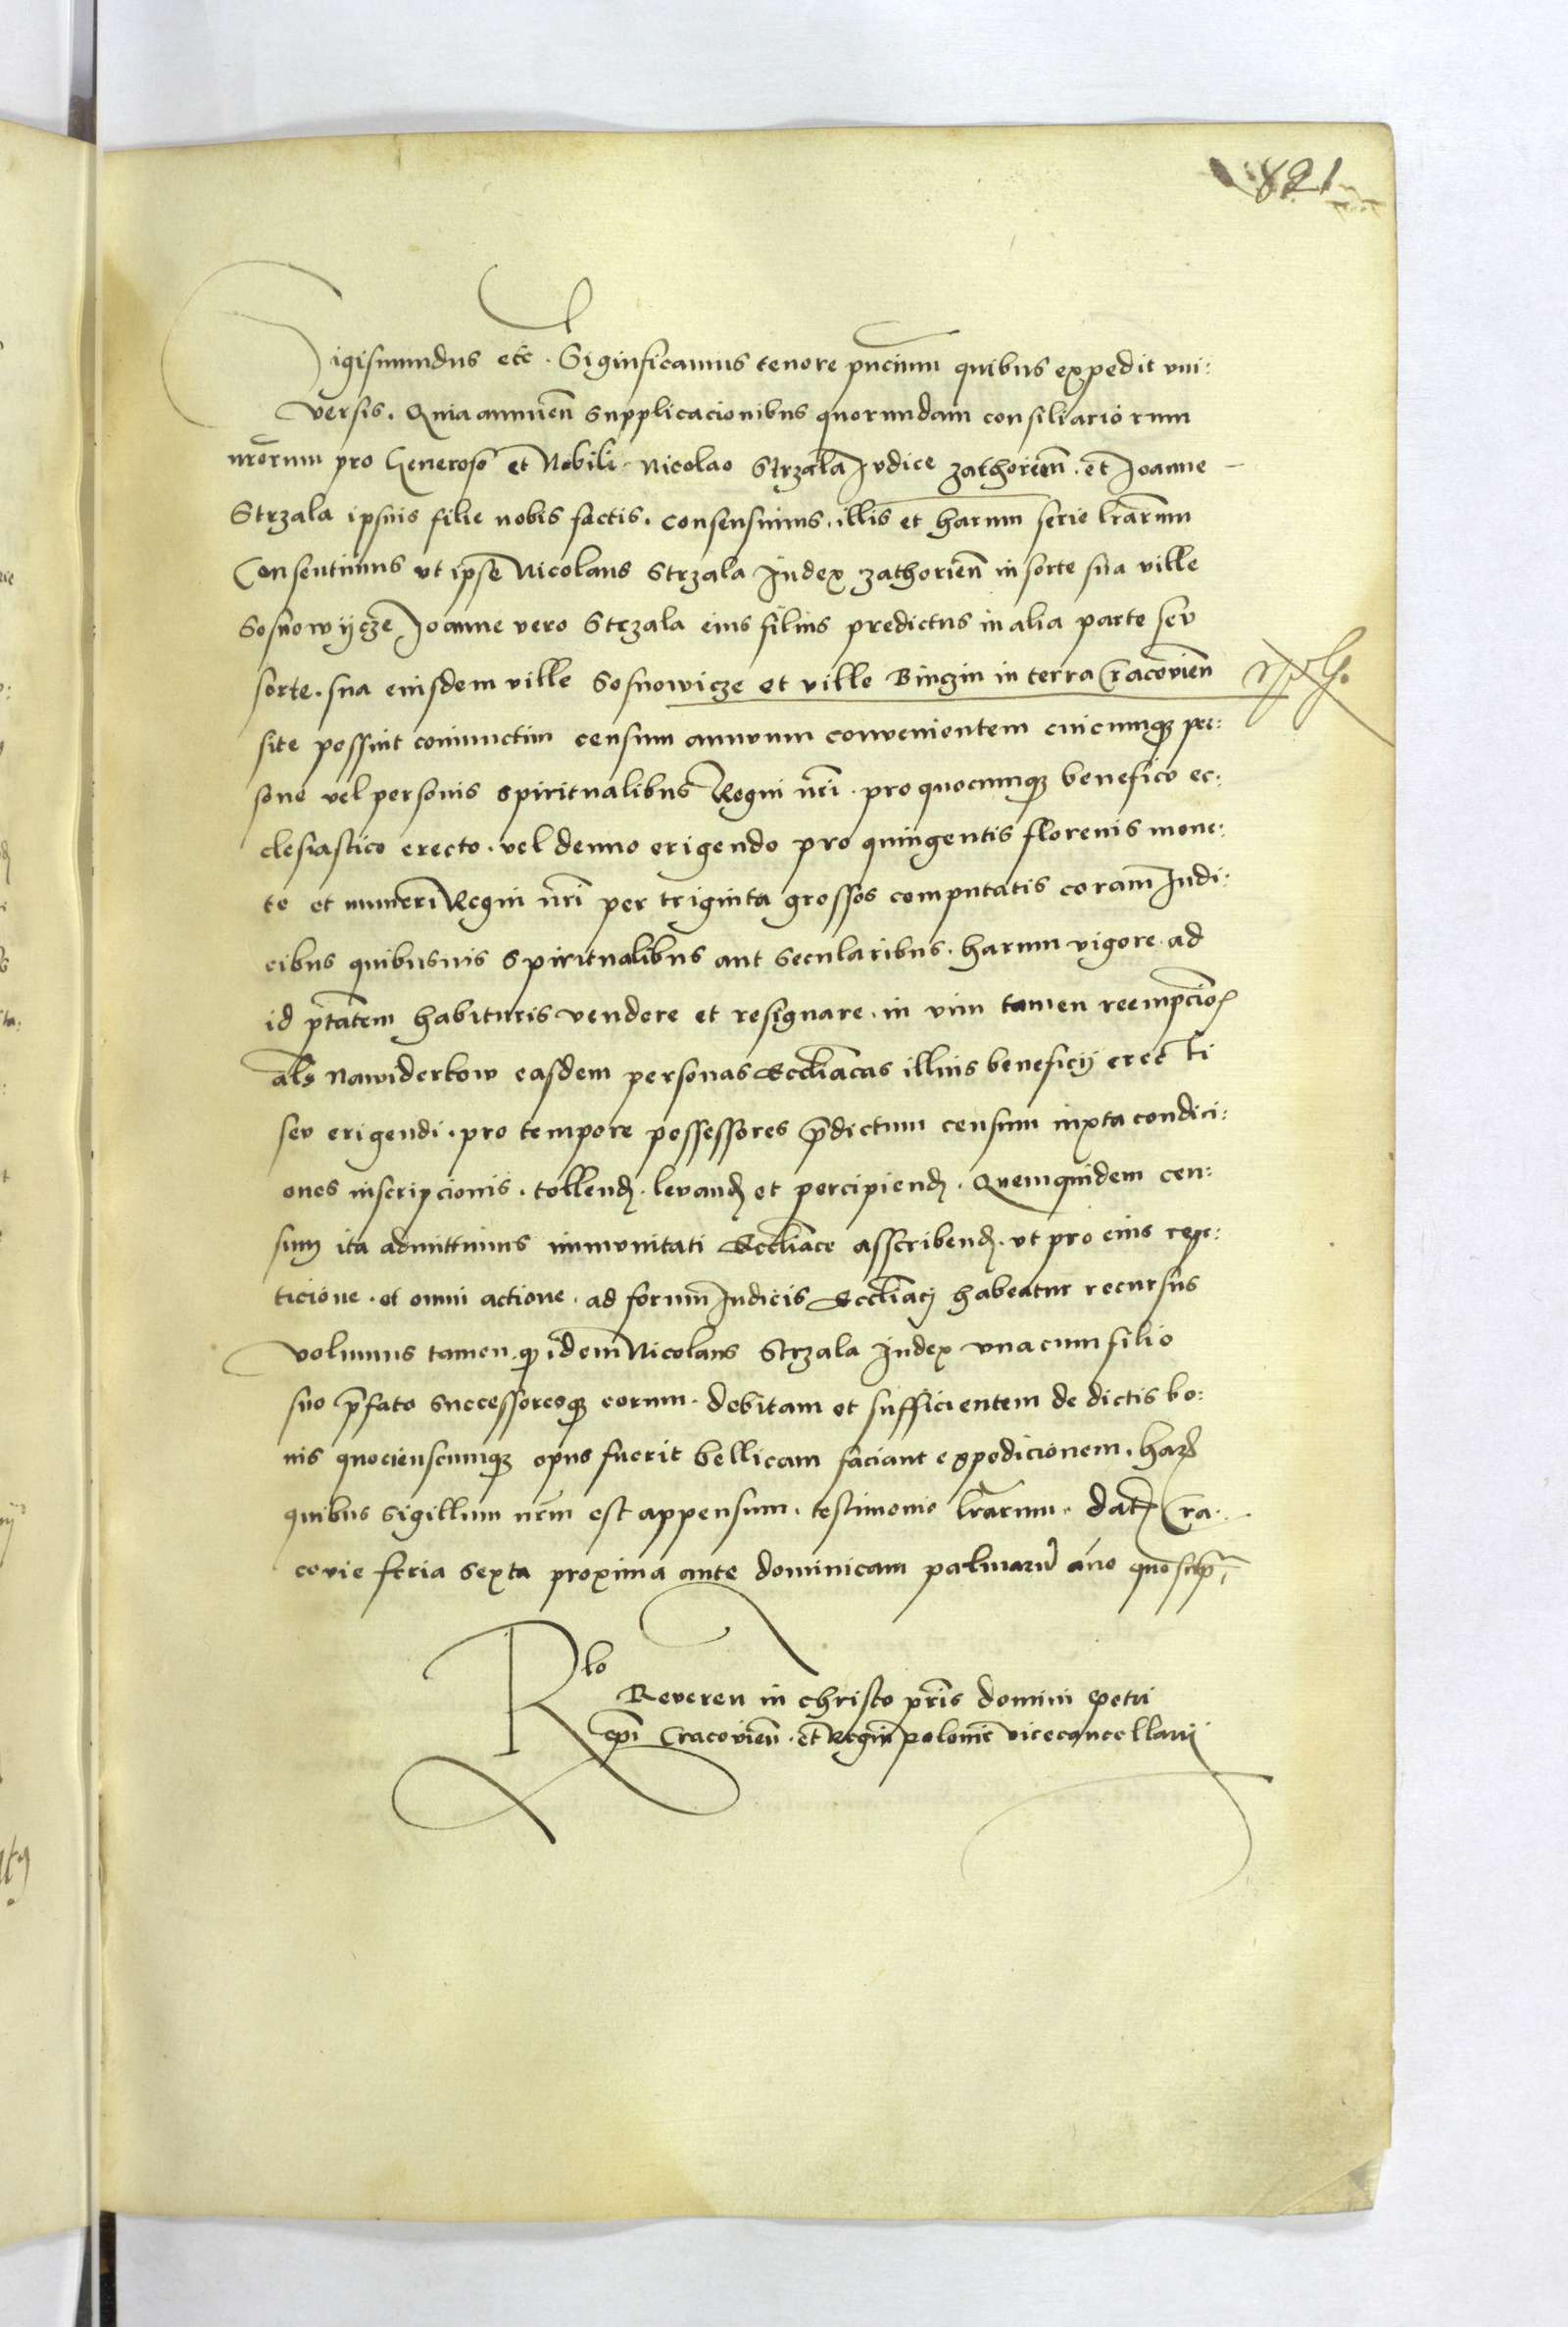 821
Sigismundus etc. Significamus tenore pñcium quibus expedit vni:
versis. Quia annueñ supplicacionibus quorundam consiliariorum
nrõrum pro Generoso et Nobili Nicolao Strzala Iudice zathorieñ. et Ioanne
Strzala ipsius filio nobis factis. Consensimus. illis et harum serie lrãrum
Consentimus vt ipse Nicolaus Strzala Iudex zathorieñ in sorte sua ville
Sosnowijcze Ioanne vero Strzala eius filius predictus in alia parte sev
sorte. sua eiusdem ville Sosnowicze et ville Binczin in terra Cracovieñ
site possint coniunctim censum annuum convenientem cuicumqz per:
sone vel personis spiritualibus Regni nrĩ. pro quocumqz beneficio ec:
clesiastico erecto. vel denuo erigendo pro quingentis florenis mone:
te et numeri Regni nrĩ per triginta grossos computatis coram Iudi:
cibus quibusuis spiritualibus aut secularibus. harum vigore. ad
id ptãtem habituris vendere et resignare. in vim tamen reempcioñ
als nawiderkow easdem personas Eccliãcas illius beneficij erecti
sev erigendi. pro tempore possessores p̃dictum censum iuxta condici:
ones inscripcionis. tollend. levand et percipiend. Quemquidem cen:
sum ita admittimus immunitati Eccliãce asscribend. vt pro eius repe:
ticione. et omni actione. ad forum Iudicis Eccliãci habeatur recursus
volumus tamen. qz idem Nicolaus Strzala Iudex vna cum filio
suo p̃fato successoresqz eorum. debitam et sufficientem de dictis bo:
nis quocienscumqz opus fuerit bellicam faciant expedicionem. har
quibus sigillum nrm̃ est appensum. testimonio lrãrum. dat Cra.
covie feria sexta proxima ante dominicam palmarũ año quo sup̃
Rlo
Reveren in christo pris̃ domini Petri
epĩ Cracovieñ. et Regni polonie vicecancellarij